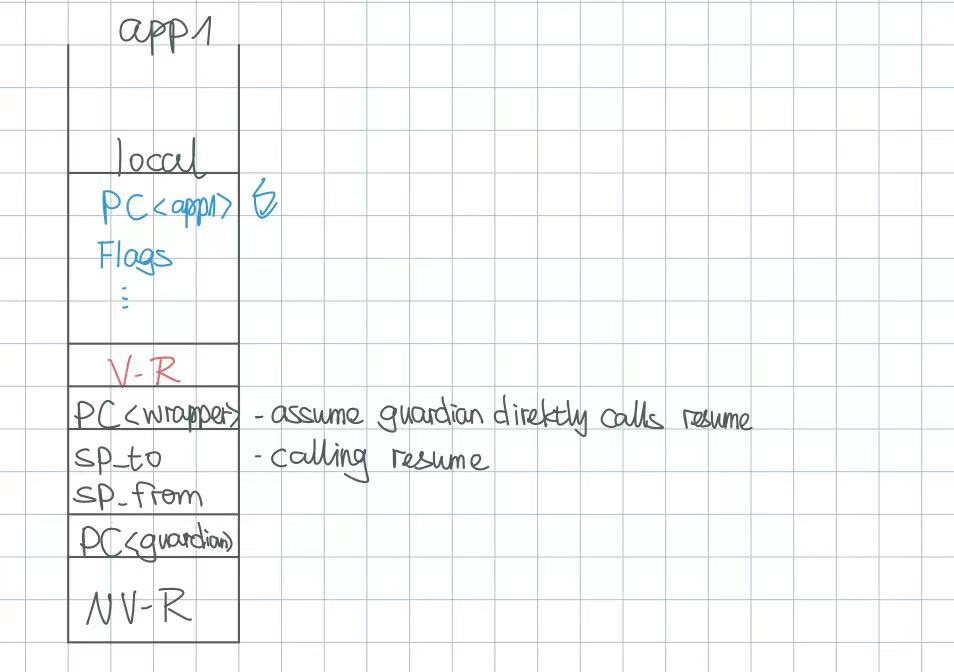 app1
local
PC<app1>
Flags
⋮
V-R
PC<wrapper> - assume guardian direktly calls resume
sp_to - calling resume
sp_from
PC<guardian>
NV-R